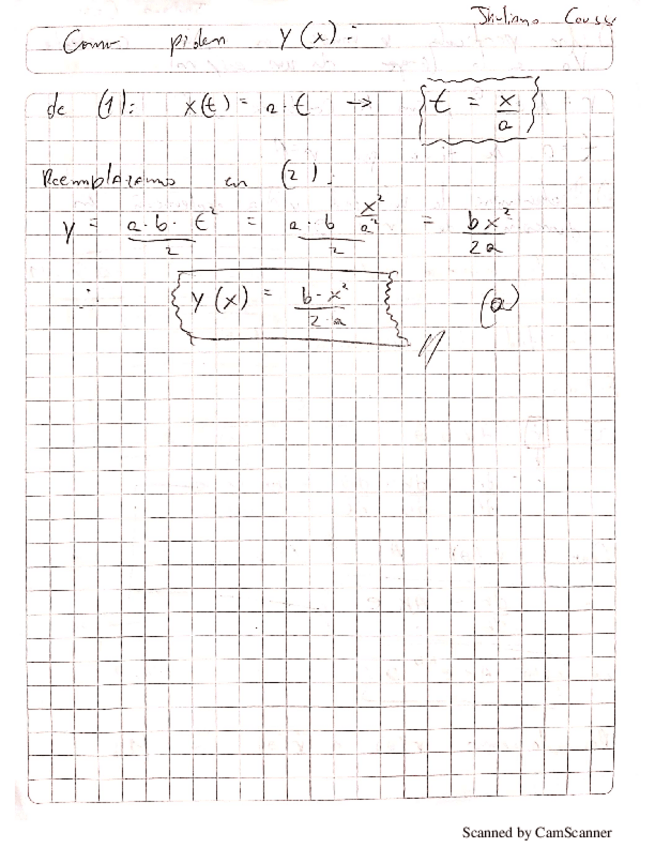 Como piden y(x):
de (1): x(t) = a·t → t = x/a
Reemplazamos en (2).
y = a·b·t²/2 = a·b x²/a²/2 = bx²/2a
∴ y(x) = b·x²/2·a (a)
Scanned by CamScanner